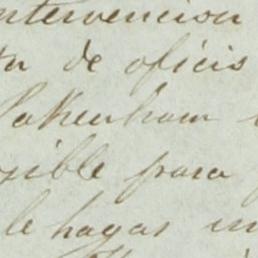 intervencion
de oficio
Pakenham
sible para
le hagas un